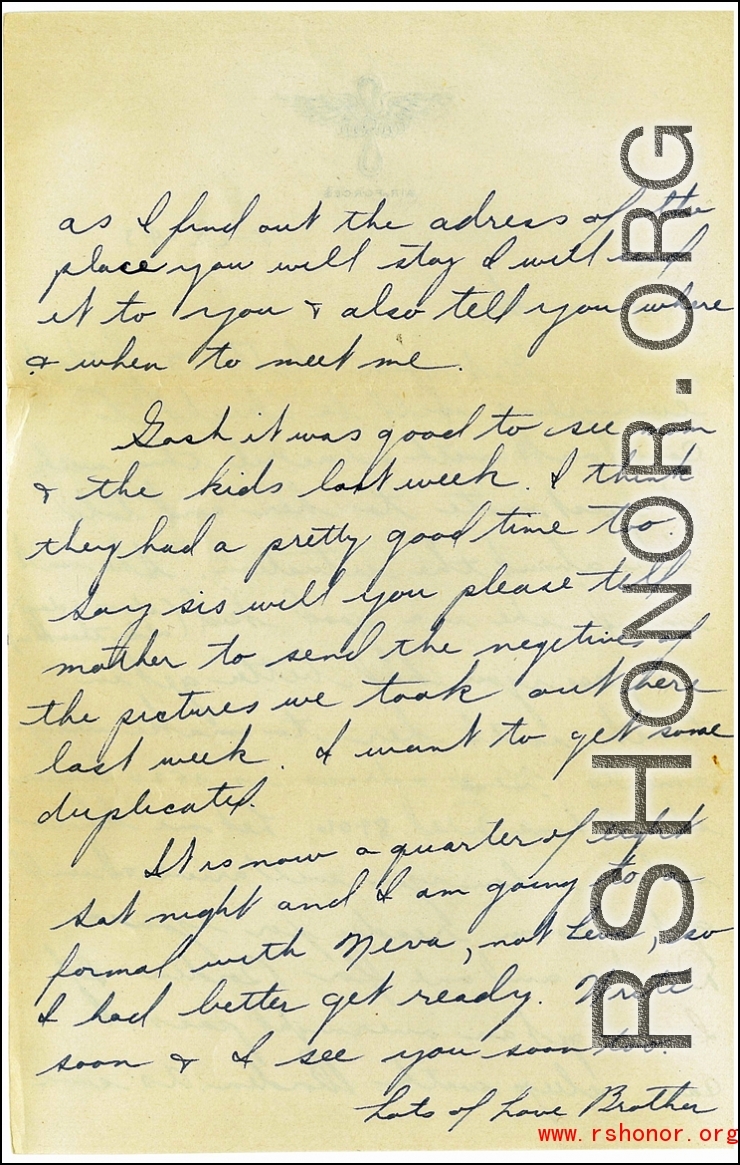 as I find out the adress of the
place you will stay I will send
it to you & also tell you where
& when to meet me.
Gosh it was good to see mom
& the kids last week. I think
they had a pretty good time too.
Say sis will you please tell
mother to send the negetives of
the pictures we took out here
last week. I want to get some
duplicated.
It is now a quarter of eight
Sat night and I am going to a
formal with Neva, not Leva, so
I had better get ready. Write
soon & I see you soon too.
Lots of Love Brother
RSHONOR.ORG
www.rshonor.org